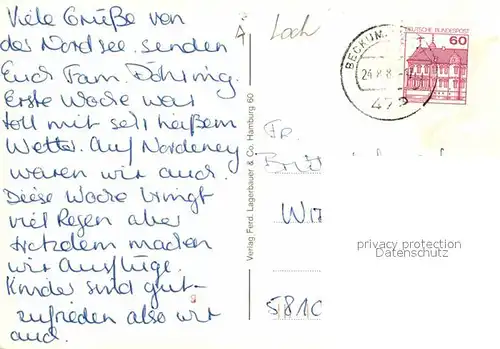 Viele Grüße von
der Nordsee senden
Euch Fam. Döhring.
Erste Woche war
toll mit sehr heißem
Wetter. Auf Norderney
waren wir auch.
Diese Woche bringt
viel Regen aber
trotzdem machen
wir Ausflüge.
Kinder sind gut-
zufrieden also wir
auch.
Verlag Ferd. Lagerbauer & Co. Hamburg 60
Loch
DEUTSCHE BUNDESPOST
60
BECKUM
24.8.8
Fr.
privacy protection
Datenschutz